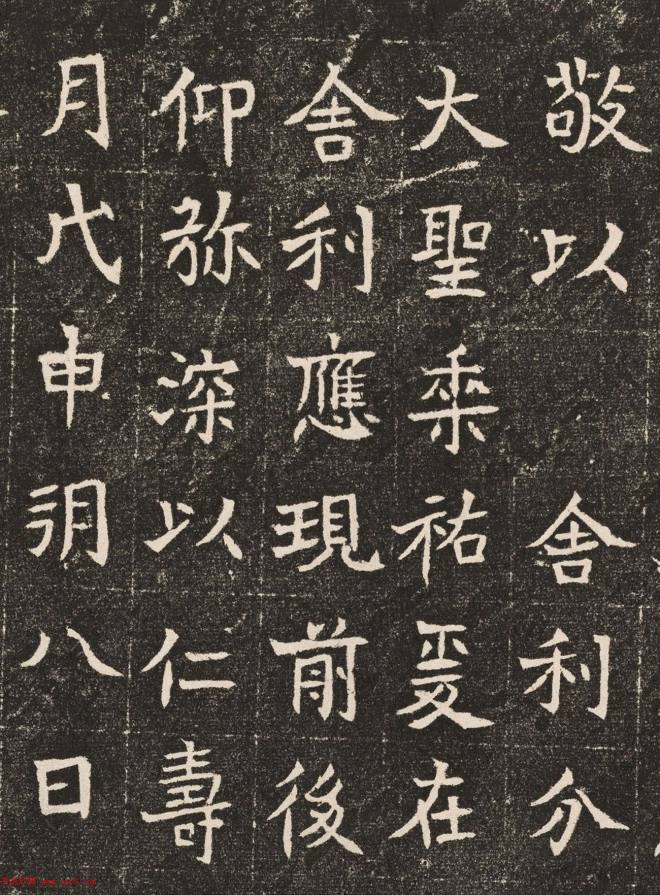 敬以舍利分
大聖垂祐爰在
舍利應現前後
仰弥深以仁壽
月戊申朔八日